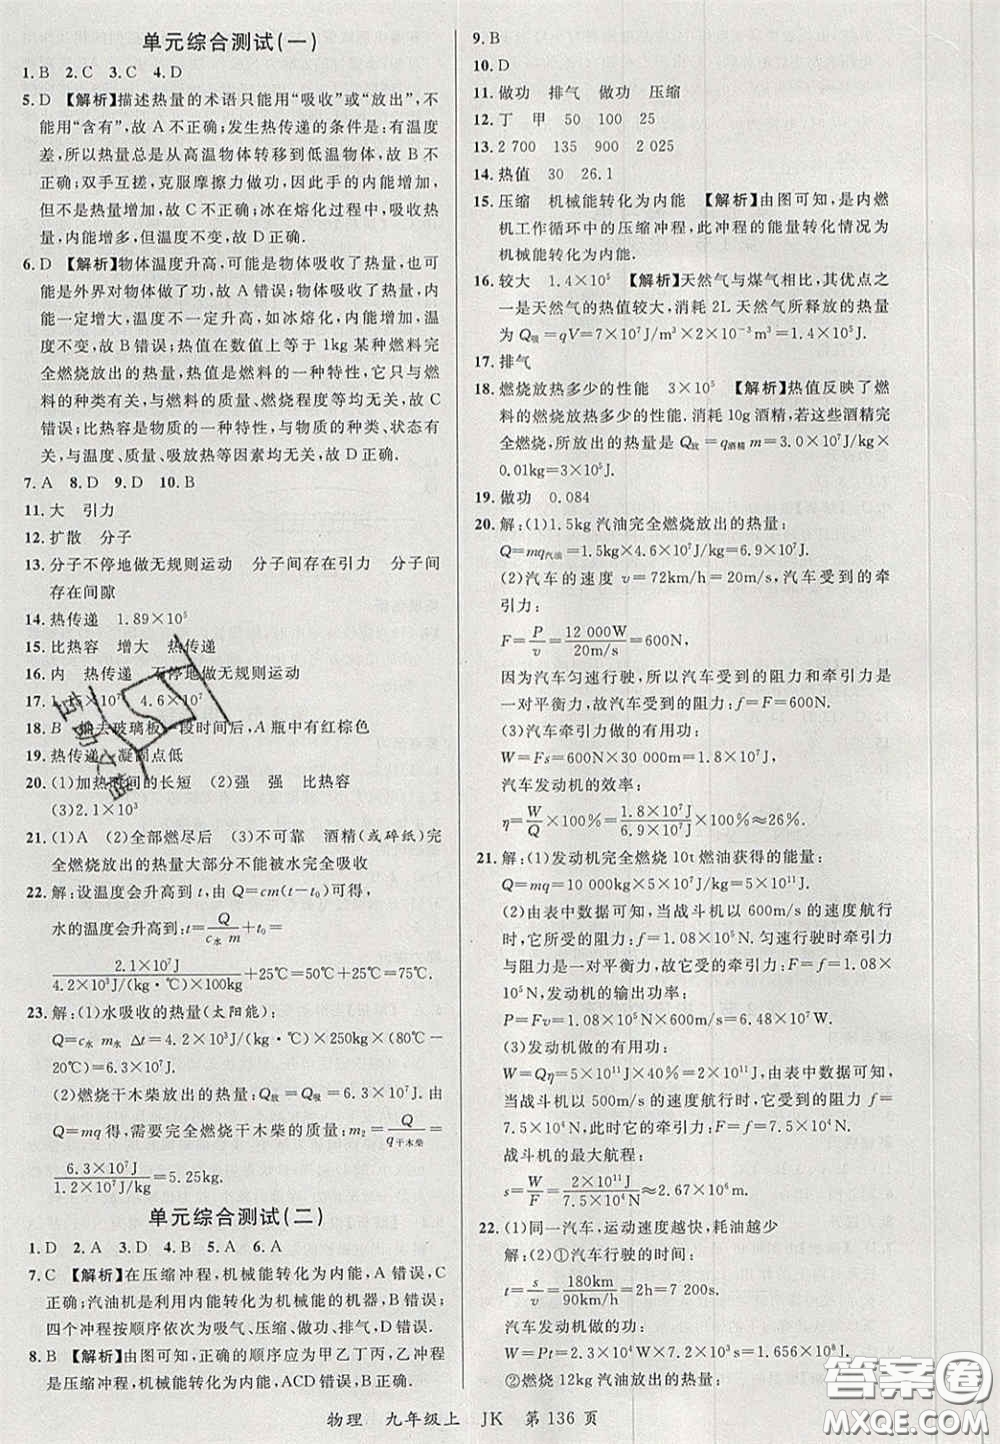 单元综合测试(一)
1.B 2.C 3.C 4.D
5.D 【解析】描述热量的术语只能用“吸收”或“放出”,不
能用“含有”,故 A 不正确;发生热传递的条件是:有温度
差,所以热量总是从高温物体转移到低温物体,故 B 不
正确;双手互搓,克服摩擦力做功,因此手的内能增加,
但不是热量增加,故 C 不正确;冰在熔化过程中,吸收热
量,内能增多,但温度不变,故 D 正确.
6.D 【解析】物体温度升高,可能是物体吸收了热量,可
能是外界对物体做了功,故 A 错误;当物体吸收热量,内
能一定增大,温度不一定升高,如冰熔化,内能增大,温
度不变,故 B 错误;热值在数值上等于1kg 某种燃料完
全燃烧放出的热量,热值是燃料的一种特性,它只与燃
料的种类有关,与燃料的质量、燃烧程度等无关,故 C
错误;比热容是物质的一种特性,与物质的种类、状态有
关,与温度、质量、吸放热等因素均无关,故 D 正确.
7.A 8.D 9.D 10.B
11.大 引力
12.扩散 分子
13.分子不停地做无规则运动 分子间存在引力 分子间
存在间隙
14.热传递 1.89×10⁵
15.比热容 增大 热传递
16.内 热传递 不停地做无规则运动
17. 4.6×10⁷
18.B 抽去玻璃板一段时间后,A 瓶中有红棕色
19.热传递 凝固点低
20.(1)加热时间的长短 (2)强 强 比热容
(3)2.1×10³
21.(1)A (2)全部燃尽后 (3)不可靠 酒精(或碎纸)完
全燃烧放出的热量大部分不能被水完全吸收
22.解:设温度会升高到 t,由 Q=cm(t-t₀)可得,
水的温度会升高到:t=Q/(c水 m)+t₀=
2.1×10⁷J/(4.2×10³J/(kg·℃)×100kg)+25℃=50℃+25℃=75℃.
23.解:(1)水吸收的热量(太阳能):
Q=c水 m水 Δt=4.2×10³J/(kg·℃)×250kg×(80℃-
20℃)=6.3×10⁷J.
(2)燃烧干木柴放出的热量:Q放=Q吸=6.3×10⁷J. 由
Q=mq 得,需要完全燃烧干木柴的质量:m₂=Q/q干木柴=
6.3×10⁷J/(1.2×10⁷J/kg)=5.25kg.
单元综合测试(二)
1.D 2.A 3.D 4.B 5.A 6.A
7.C 【解析】在压缩冲程,机械能转化为内能,A 错误,C
正确;汽油机是利用内能转化为机械能的机器,B 错误;
四个冲程按顺序依次为吸气、压缩、做功、排气,D 错误.
8.B 【解析】由图可知,正确的顺序应为甲乙丁丙,乙冲程
是压缩冲程,机械能转化为内能,ACD错误,B 正确.
9.B
10.D
11.做功 排气 做功 压缩
12.丁 甲 50 100 25
13.2 700 135 900 2 025
14.热值 30 26.1
15.压缩 机械能转化为内能 【解析】由图可知,是内燃
机工作循环中的压缩冲程,此冲程的能量转化情况为
机械能转化为内能.
16.较大 1.4×10⁵ 【解析】天然气与煤气相比,其优点之
一是天然气的热值较大,消耗 2L 天然气所释放的热量
为 Q吸=qV=7×10⁷J/m³×2×10⁻³m³=1.4×10⁵J.
17.排气
18.燃烧放热多少的性能 3×10⁵ 【解析】热值反映了燃
料的燃烧放热多少的性能. 消耗 10g 酒精,若这些酒精完
全燃烧,所放出的热量是 Q放=q酒精 m=3.0×10⁷J/kg×
0.01kg=3×10⁵J.
19.做功 0.084
20.解:(1)1.5kg 汽油完全燃烧放出的热量:
Q=mq汽油=1.5kg×4.6×10⁷J/kg=6.9×10⁷J.
(2)汽车的速度 v=72km/h=20m/s,汽车受到的牵
引力:
F=P/v=12 000W/20m/s=600N,
因为汽车匀速行驶,所以汽车受到的阻力和牵引力是
一对平衡力,故汽车受到的阻力:f=F=600N.
(3)汽车牵引力做的有用功:
W=Fs=600N×30 000m=1.8×10⁷J,
汽车发动机的效率:
η=W/Q×100%=1.8×10⁷J/6.9×10⁷J×100%≈26%.
21.解:(1)发动机完全燃烧 10t 燃油获得的能量:
Q=mq=10 000kg×5×10⁷J/kg=5×10¹¹J.
(2)由表中数据可知,当战斗机以 600m/s 的速度航行
时,它所受的阻力:f=1.08×10⁵N. 匀速行驶时牵引力
与阻力是一对平衡力,故它所受的牵引力:F=f=1.08×
10⁵N,发动机的输出功率:
P=Fv=1.08×10⁵N×600m/s=6.48×10⁷W.
(3)发动机做的有用功:
W=Qη=5×10¹¹J×40%=2×10¹¹J,由表中数据可知,
当战斗机以500m/s的速度航行时,它所受的阻力 f=
7.5×10⁴N,此时它所受的牵引力:F=f=7.5×10⁴N.
战斗机的最大航程:
s=W/F=2×10¹¹J/7.5×10⁴N≈2.67×10⁶m.
22.(1)同一汽车,运动速度越快,耗油越少
解:(2)①汽车行驶的时间:
t=s/v=180km/90km/h=2h=7 200s,
汽车发动机做的功:
W=Pt=2.3×10⁴W×7 200s=1.656×10⁸J
②燃烧12kg汽油放出的热量:
物理 九年级上 JK 第 136 页
答案圈
MXQE.COM